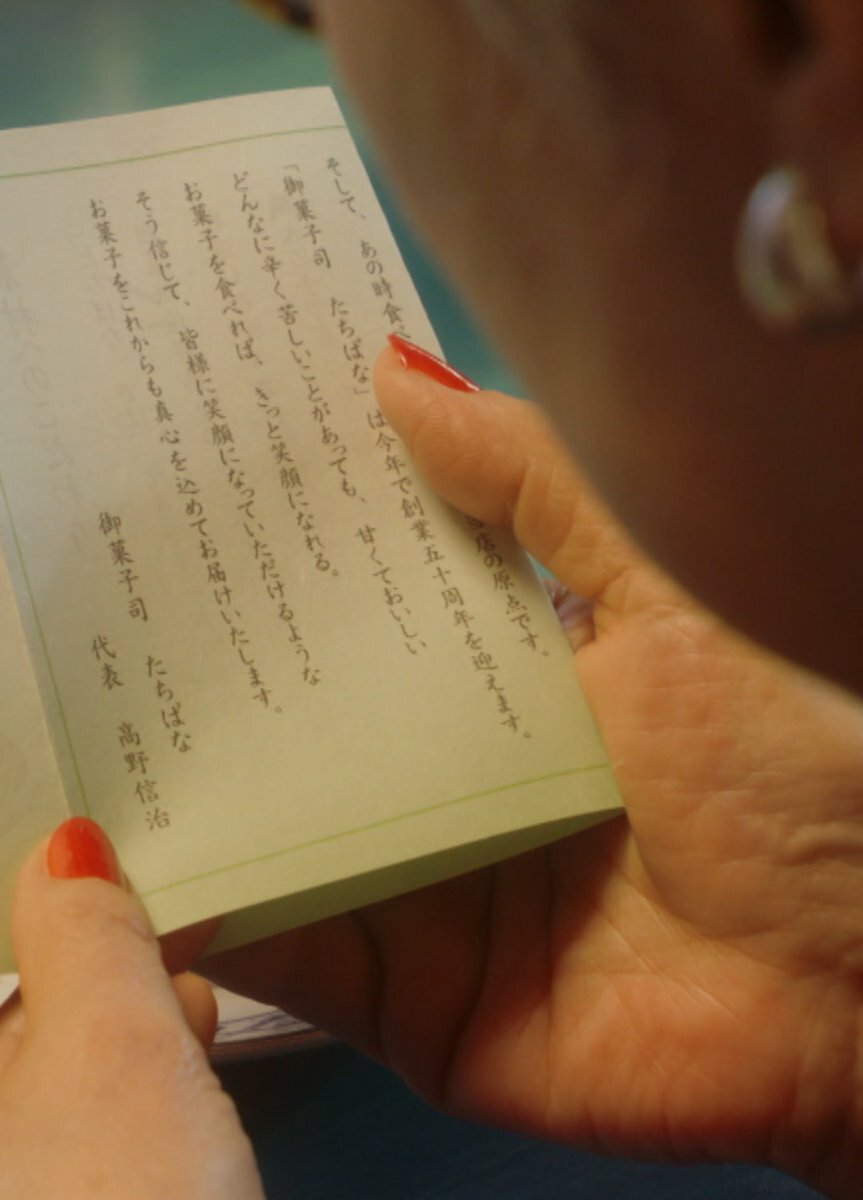 そして、あの時食べ
当店の原点です。
「御菓子司　たちばな」は今年で創業五十周年を迎えます。
どんなに辛く苦しいことがあっても、甘くておいしい
お菓子を食べれば、きっと笑顔になれる。
そう信じて、皆様に笑顔になっていただけるような
お菓子をこれからも真心を込めてお届けいたします。
御菓子司　たちばな
代表　高野信治